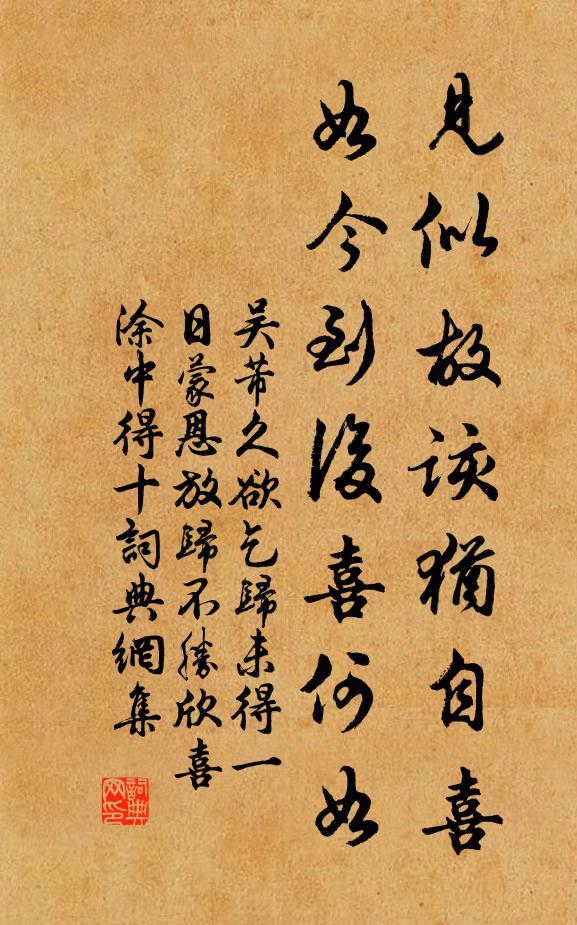 見似故該猶自喜
如今到後喜何如
吴芾久欲乞歸未得一
日蒙恩放歸不勝欣喜
涂中得十詞典網集
詞典
网印